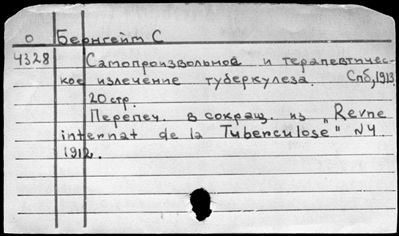 О Бернгейм С
4328 Самопроизвольное и терапевтичес-
кое излечение туберкулеза. Спб, 1913
20 стр.
Перепеч. в сокращ. из „Revne
internat de la Tuberculose" N4
1912.